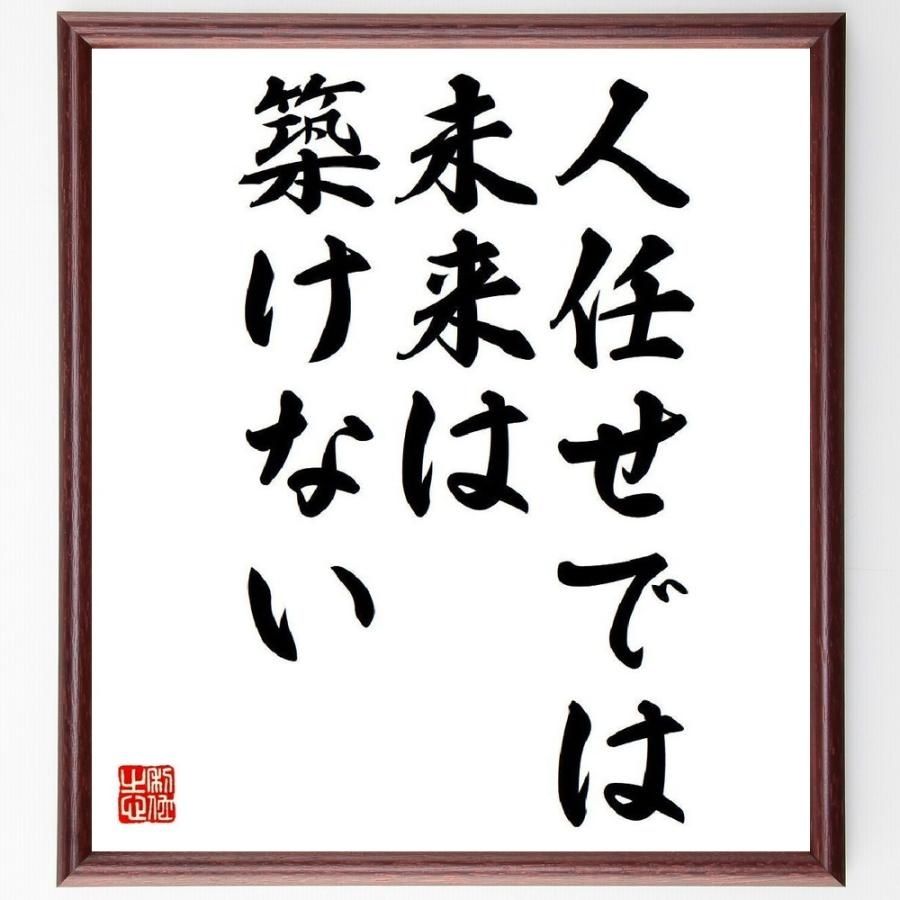 人任せでは
未来は
築けない